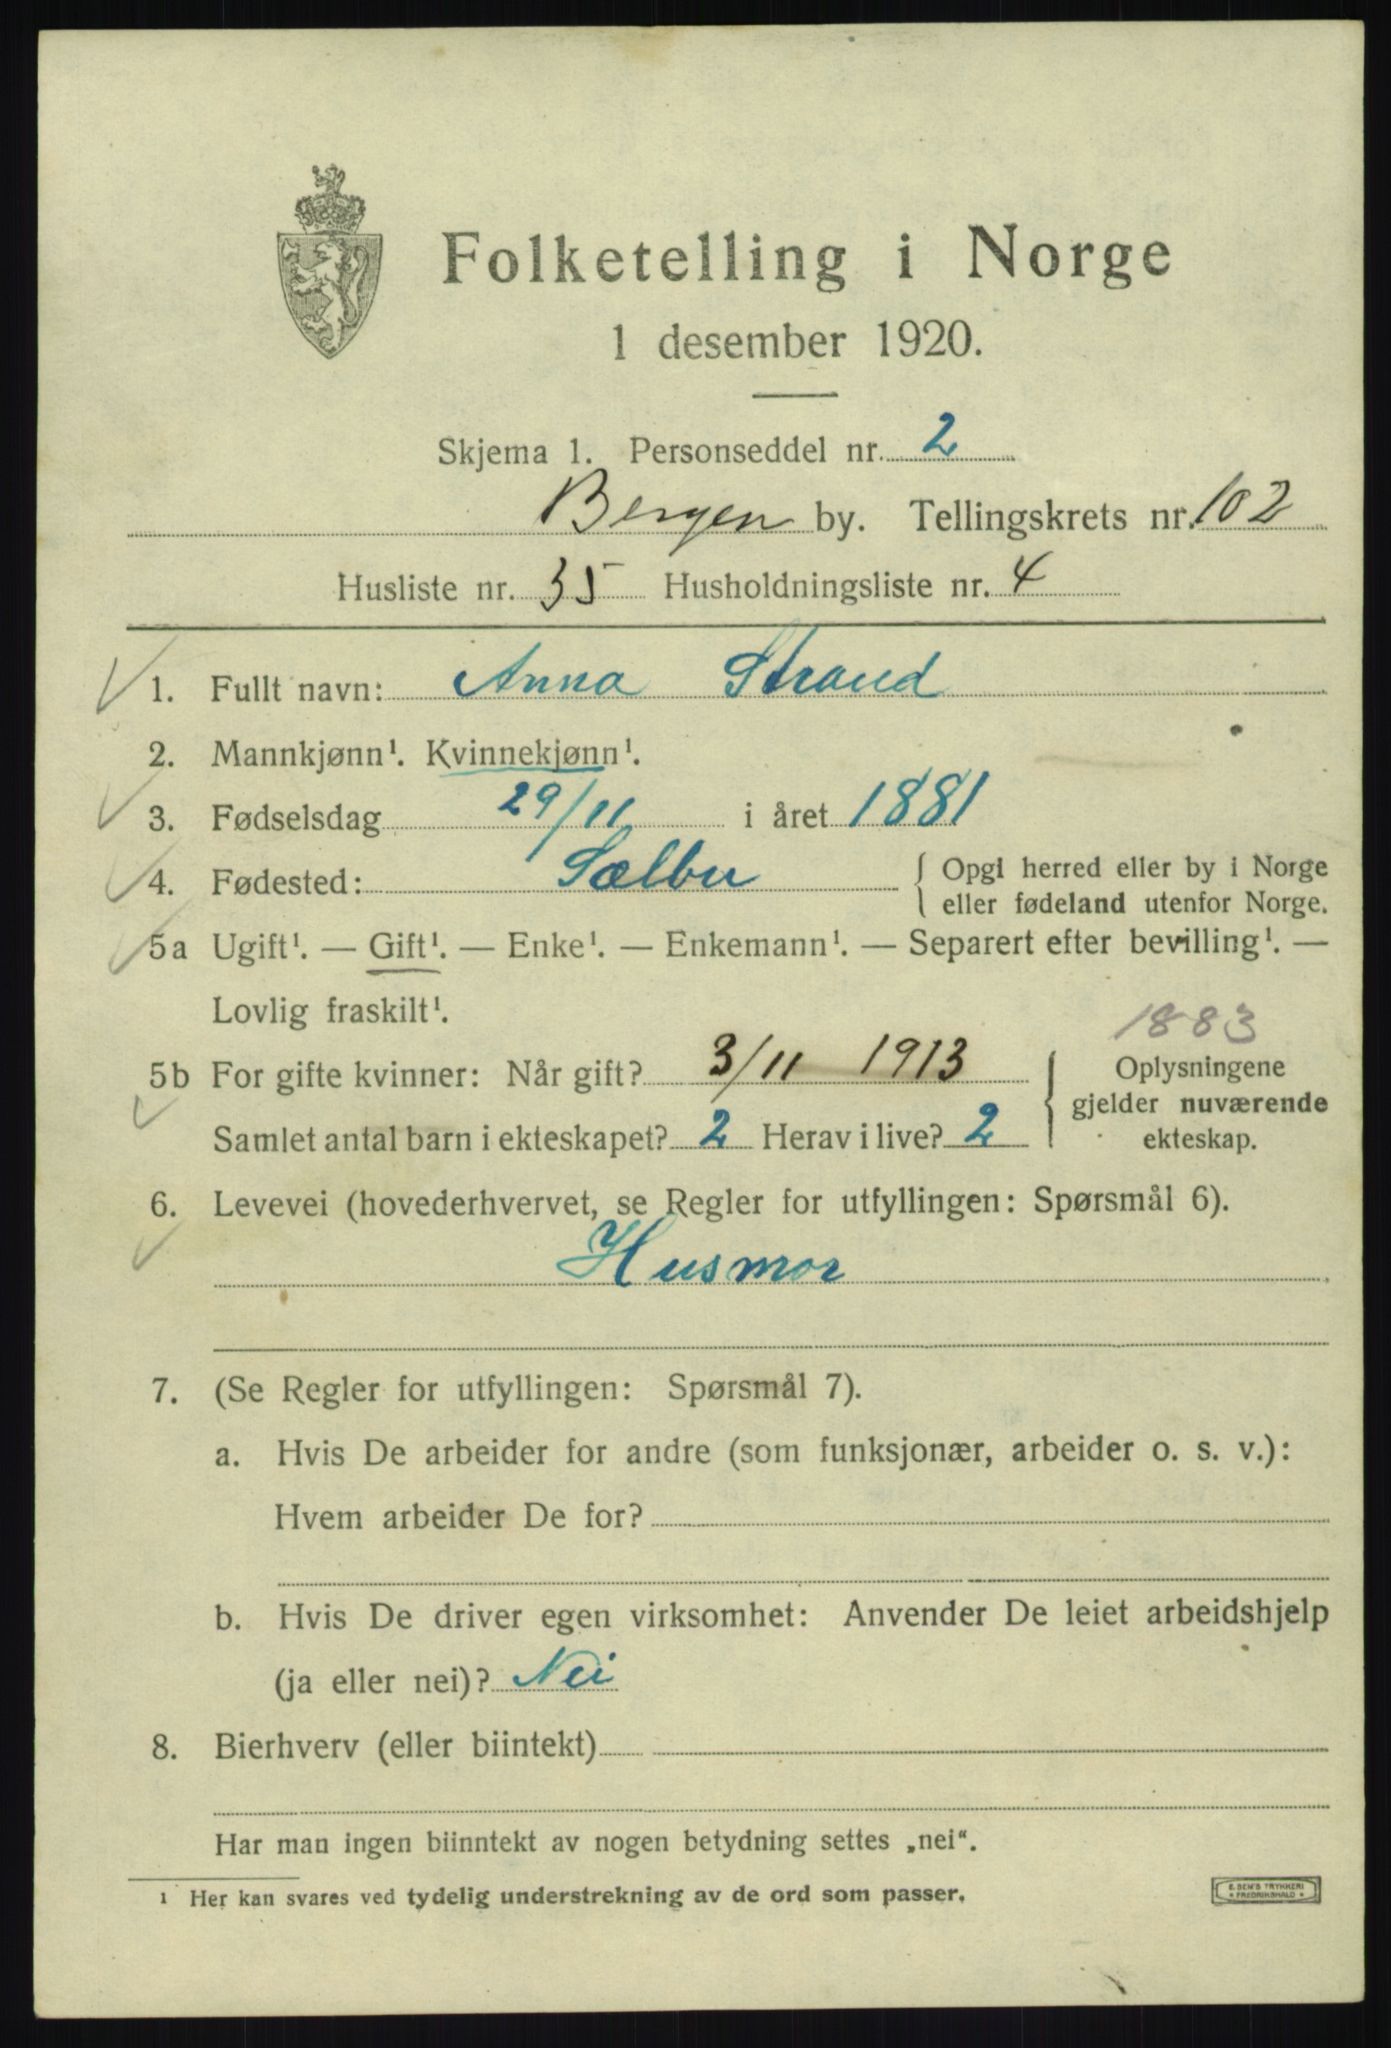 Folketelling i Norge
1 desember 1920.
Skjema 1. Personseddel nr. 2
Bergen by. Tellingskrets nr. 102
Husliste nr. 35 Husholdningsliste nr. 4
1. Fullt navn: Anna Strand
2. Mannkjønn¹. Kvinnekjønn¹.
3. Fødselsdag 29/11 i året 1881
4. Fødested: Sælbu { Opgi herred eller by i Norge
eller fødeland utenfor Norge.
5a Ugift¹. — Gift¹. — Enke¹. — Enkemann¹. — Separert efter bevilling¹. —
Lovlig fraskilt¹.
1883
5b For gifte kvinner: Når gift? 3/11 1913 { Oplysningene
gjelder nuværende
Samlet antal barn i ekteskapet? 2 Herav i live? 2 ekteskap.
6. Levevei (hovederhvervet, se Regler for utfyllingen: Spørsmål 6).
Husmor
7. (Se Regler for utfyllingen: Spørsmål 7).
a. Hvis De arbeider for andre (som funksjonær, arbeider o. s. v.):
Hvem arbeider De for?
b. Hvis De driver egen virksomhet: Anvender De leiet arbeidshjelp
(ja eller nei)? Nei
8. Bierhverv (eller biintekt)
Har man ingen biinntekt av nogen betydning settes „nei“.
¹ Her kan svares ved tydelig understrekning av de ord som passer.
E. SEM'S TRYKKERI
FREDRIKSHALD